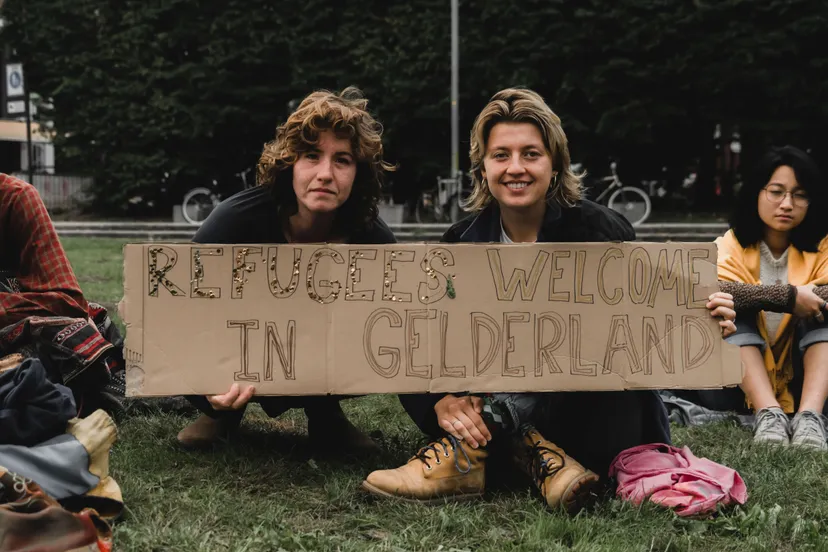 REFUGEES WELCOME
IN GELDERLAND